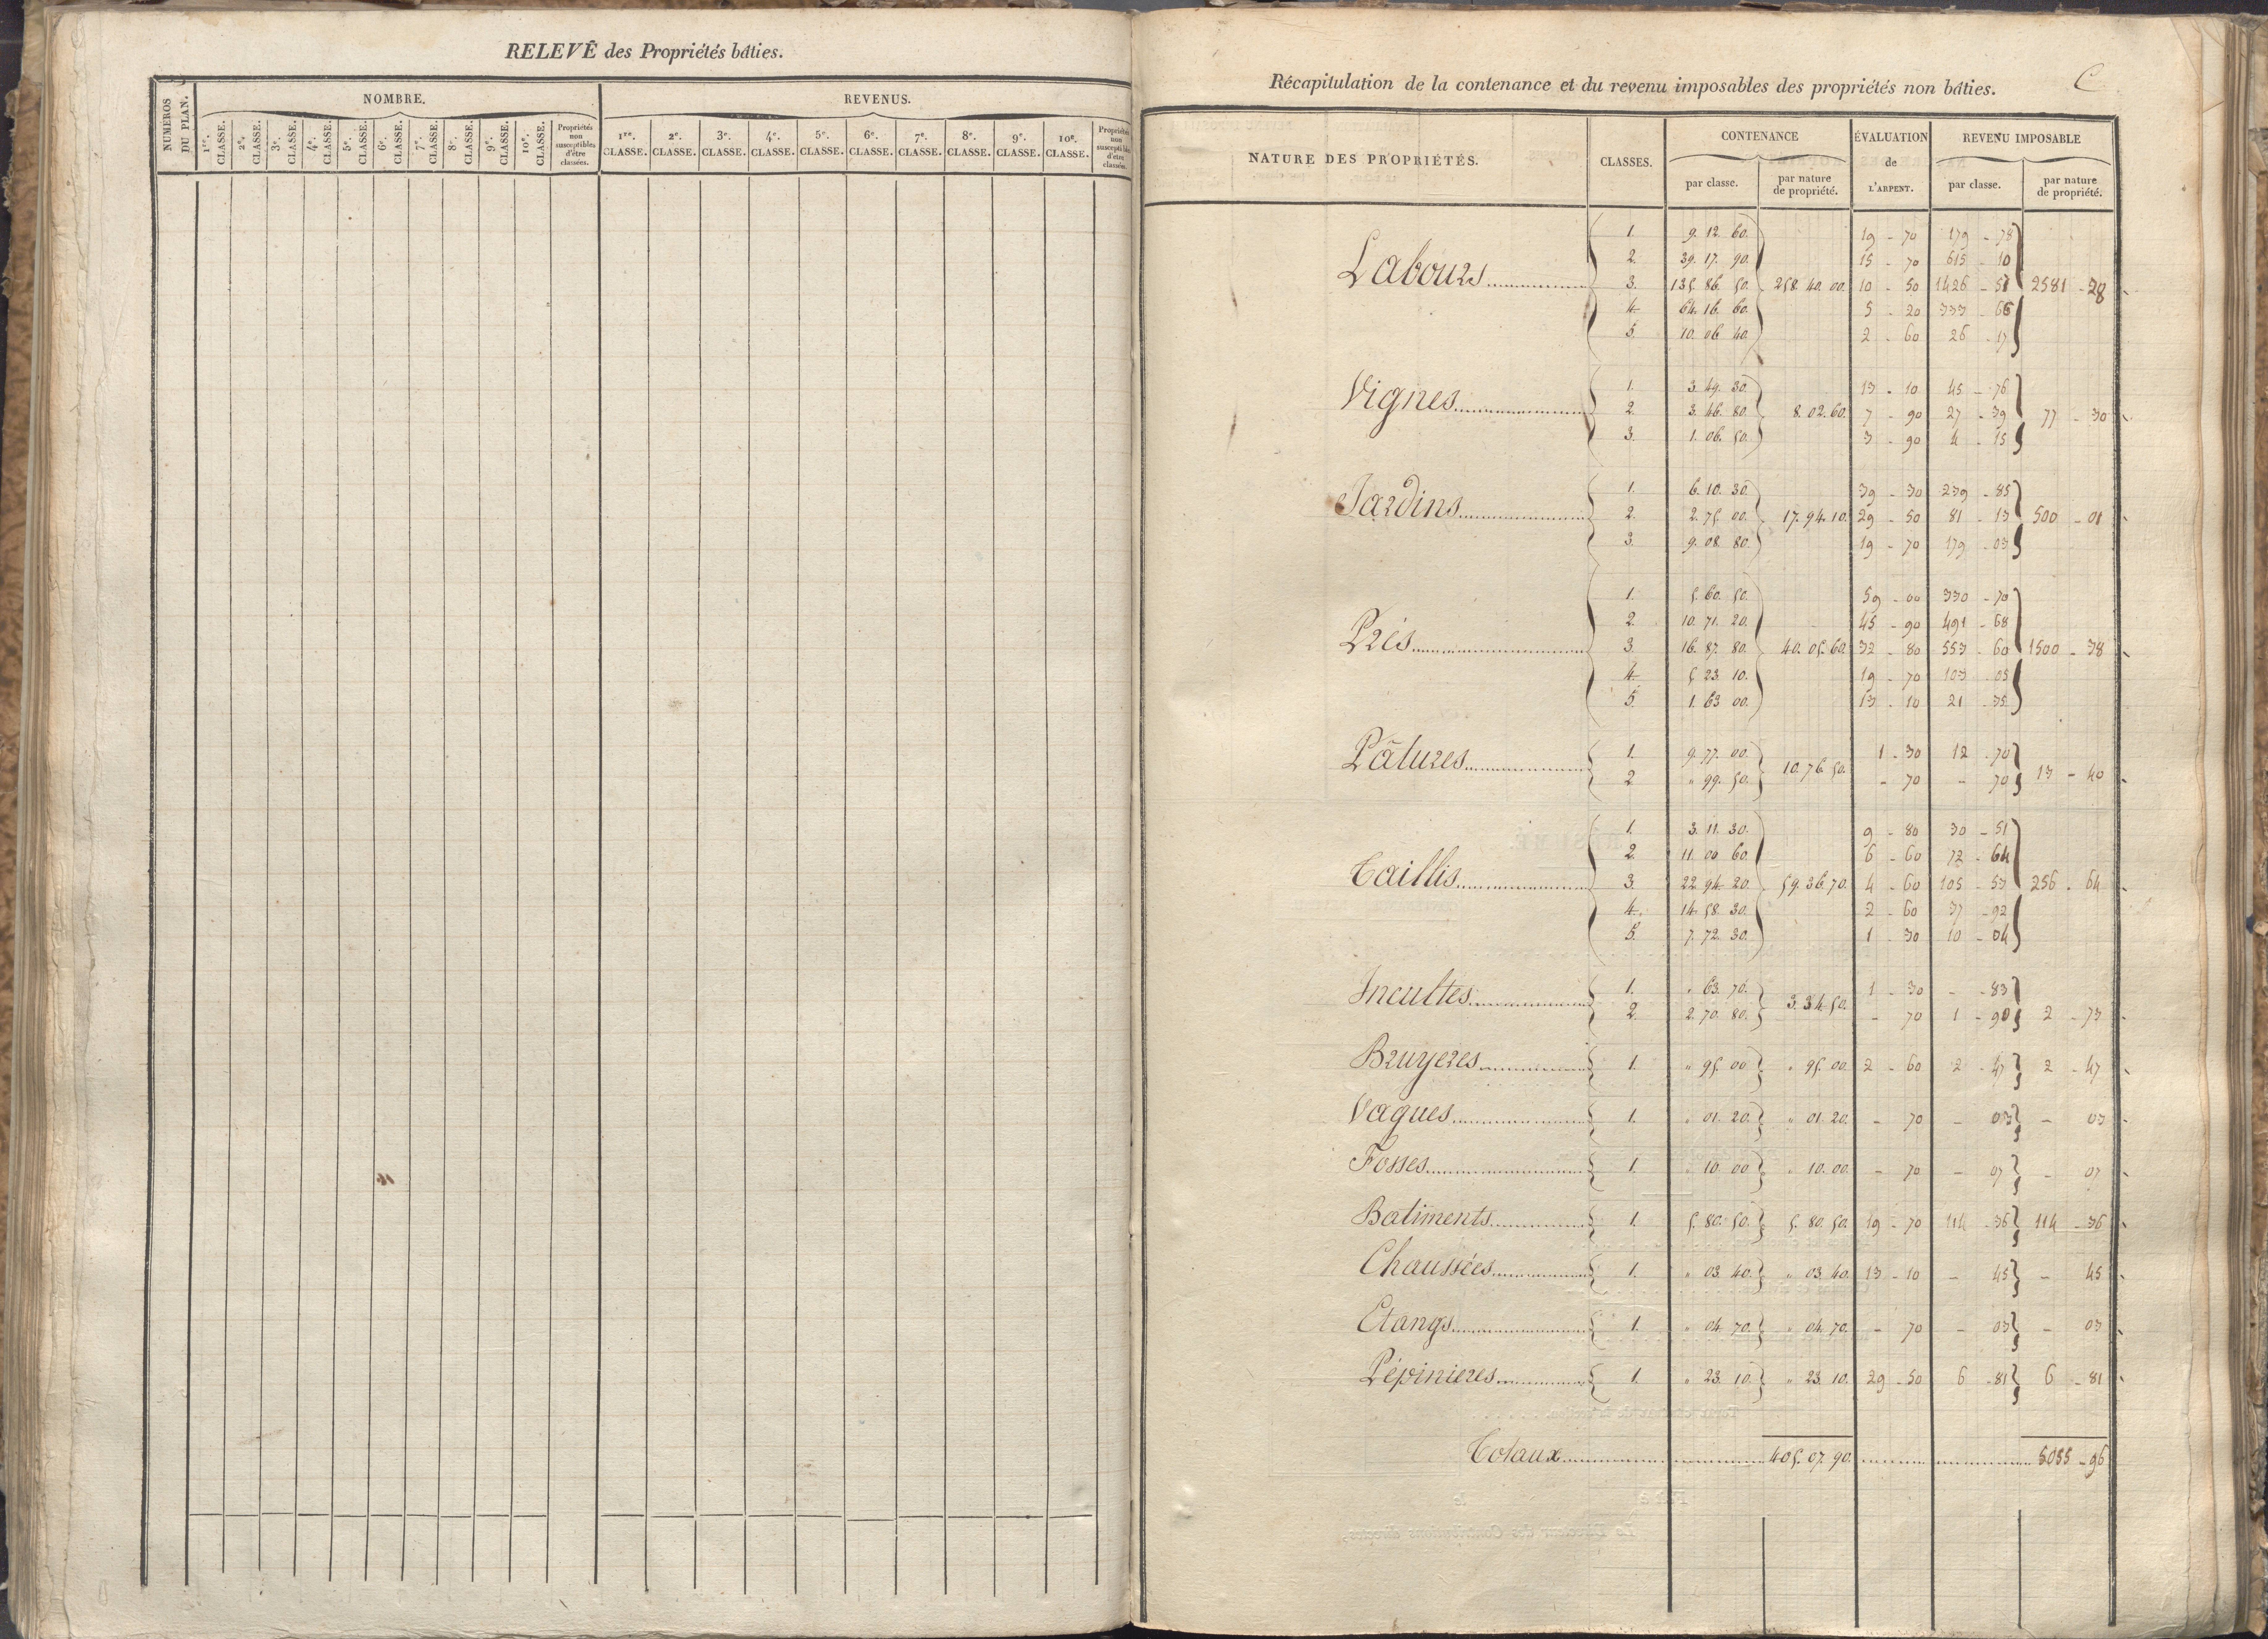 RELEVÉ des Propriétés bâties.
NUMEROS DU PLAN.
NOMBRE.
REVENUS.
1re. CLASSE. 2e. CLASSE. 3e. CLASSE. 4e. CLASSE. 5e. CLASSE. 6e. CLASSE. 7e. CLASSE. 8e. CLASSE. 9e. CLASSE. 10e. CLASSE. Propriétés non susceptibles d'être classées.
1re. CLASSE. 2e. CLASSE. 3e. CLASSE. 4e. CLASSE. 5e. CLASSE. 6e. CLASSE. 7e. CLASSE. 8e. CLASSE. 9e. CLASSE. 10e. CLASSE. Propriétés non susceptibles d'être classées.
Récapitulation de la contenance et du revenu imposables des propriétés non bâties. C
NATURE DES PROPRIÉTÉS. CLASSES. CONTENANCE ÉVALUATION de L'ARPENT. REVENU IMPOSABLE
par classe. par nature de propriété. par classe. par nature de propriété.
1. 9. 12. 60. 19 - 70 179 - 78
2. 39. 17. 90. 15 - 70 615 - 10
Labours 3. 135. 86. 50. 258. 40. 00. 10 - 50 1426 - 57 2581 - 28
4. 64. 16. 60. 5 - 20 333 - 66
5. 10. 06. 40. 2 - 60 26 - 17
1. 3. 49. 30. 13 - 10 45 - 76
Vignes 2. 3. 46. 80. 8. 02. 60. 7 - 90 27 - 39 77 - 30
3. 1. 06. 50. 3 - 90 4 - 15
1. 6. 10. 30. 39 - 30 239 - 85
Jardins 2. 2. 75. 00. 17. 94. 10. 29 - 50 81 - 13 500 - 01
3. 9. 08. 80. 19 - 70 179 - 03
1. 5. 60. 50. 59 - 00 330 - 70
2. 10. 71. 20. 45 - 90 491 - 68
Prés 3. 16. 87. 80. 40. 05. 60. 32 - 80 553 - 60 1500 - 38
4. 5. 23. 10. 19 - 70 103 - 05
5. 1. 63. 00. 13 - 10 21 - 35
Pâtures 1. 9. 77. 00. 10. 76. 50. 1 - 30 12 - 70 13 - 40
2 " 99. 50. - 70 - 70
1. 3. 11. 30. 9 - 80 30 - 51
2. 11. 00. 60. 6 - 60 72 - 64
Taillis 3. 22. 94. 20. 59. 36. 70. 4 - 60 105 - 53 256 - 64
4. 14. 58. 30. 2 - 60 37 - 92
5. 7. 72. 30. 1 - 30 10 - 04
Incultes 1. " 63. 70. 3. 34. 50. 1 - 30 - - 83
2. 2. 70. 80. - 70 1 - 90 2 - 73
Bruyeres 1. " 95. 00 " 95. 00. 2 - 60 2 - 47 2 - 47
Vagues 1. " 01. 20. " 01. 20. - 70 - 03 - 03
Fosses 1. " 10. 00 " 10. 00. - 70 - 07 - 07
Batiments 1. 5. 80. 50. 5. 80. 50. 19 - 70 114 - 36 114 - 36
Chaussées 1. " 03. 40. " 03. 40. 13 - 10 - 45 - 45
Etangs 1. " 04. 70. " 04. 70. - 70 - 03 - 03
Pépinieres 1. " 23. 10. " 23. 10. 29 - 50 6 - 81 6 - 81
Totaux 405. 07. 90. 5055 - 96